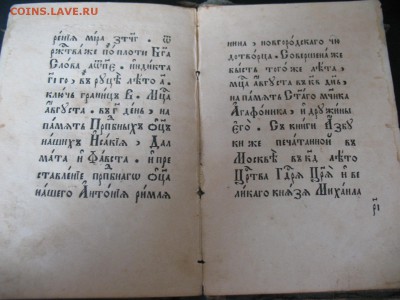 COINS.LAVE.RU
ре́нїѧ мі́ра ѕ҃тч҃г.
ржⷭ҇тва же по́ плоти бг҃а
сло́ва
г҃его̀, врꙋцѣ̀ лѣ́то а҃.
клю́чь грани́цъ в҃. мц҃а
а҆́вгꙋста. въ г҃ де́нь, на
па́мѧть прпⷣбныхъ ѻц҃ъ
на́шихъ і҆саа́кїѧ, дал
ма́та и҆ фа́ѵста. и҆ пре
ставле́нїе прпⷣбнагѡ ѻц҃а
на́шего а҆нтѡ́нїѧ ри́млѧ
нина, новгоро́дскаго чю
дотво́рца. Соверше́на же
бы́сть того́ же лѣ́та,
мц҃а а҆́вгꙋста въ дн҃ь,
на па́мѧть ст҃а́го мч҃ика
а҆гаѳо́ника, и҆ дрꙋжи́ны
є҆гѡ̀. Съ кни́ги а҆́збꙋ
ки же печа́танной в
москвѣ̀ въ лѣ́то
црⷭ҇тва гдⷭ҇рѧ цр҃ѧ̀ и҆ ве
ли́каго кн҃зѧ михаи́ла